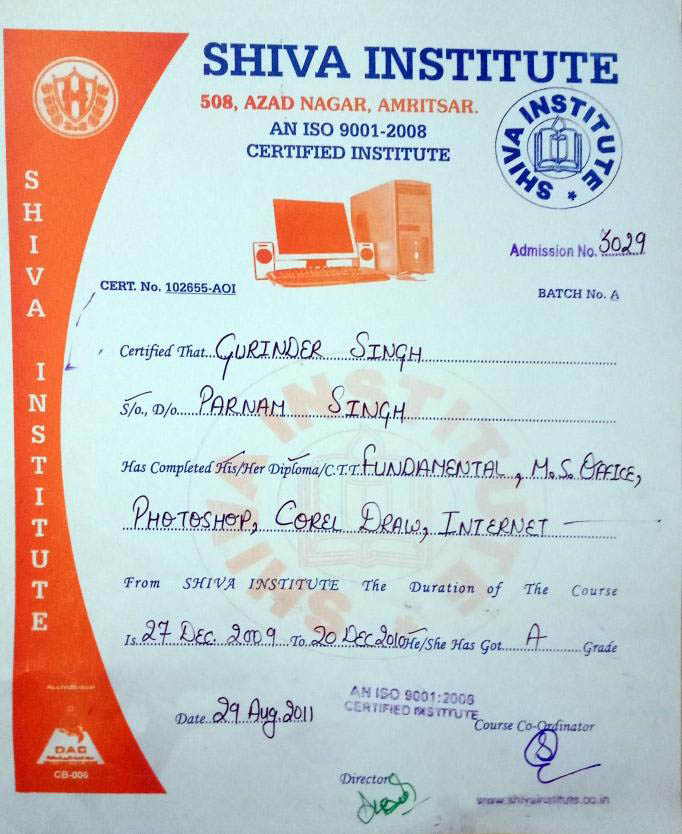 SHIVA INSTITUTE
508, AZAD NAGAR, AMRITSAR.
AN ISO 9001-2008
CERTIFIED INSTITUTE
SHIVA INSTITUTE *
Admission No. 3029
CERT. No. 102655-AOI
BATCH No. A
SHIVA INSTITUTE
Certified That...GURINDER SINGH
S/o., D/o....PARNAM SINGH
Has Completed His/Her Diploma/C.T.T. FUNDAMENTAL, M.S. OFFICE,
PHOTOSHOP, COREL DRAW, INTERNET —
From SHIVA INSTITUTE The Duration of The Course
Is. 27 DEC. 2009 To. 20 DEC 2010 He/She Has Got. A Grade
Date. 29 Aug. 2011
AN ISO 9001:2008
CERTIFIED INSTITUTE
Course Co-Ordinator
Director
www.shivainstitute.co.in
DAC
CB-006
SHIVA INSTITUTE